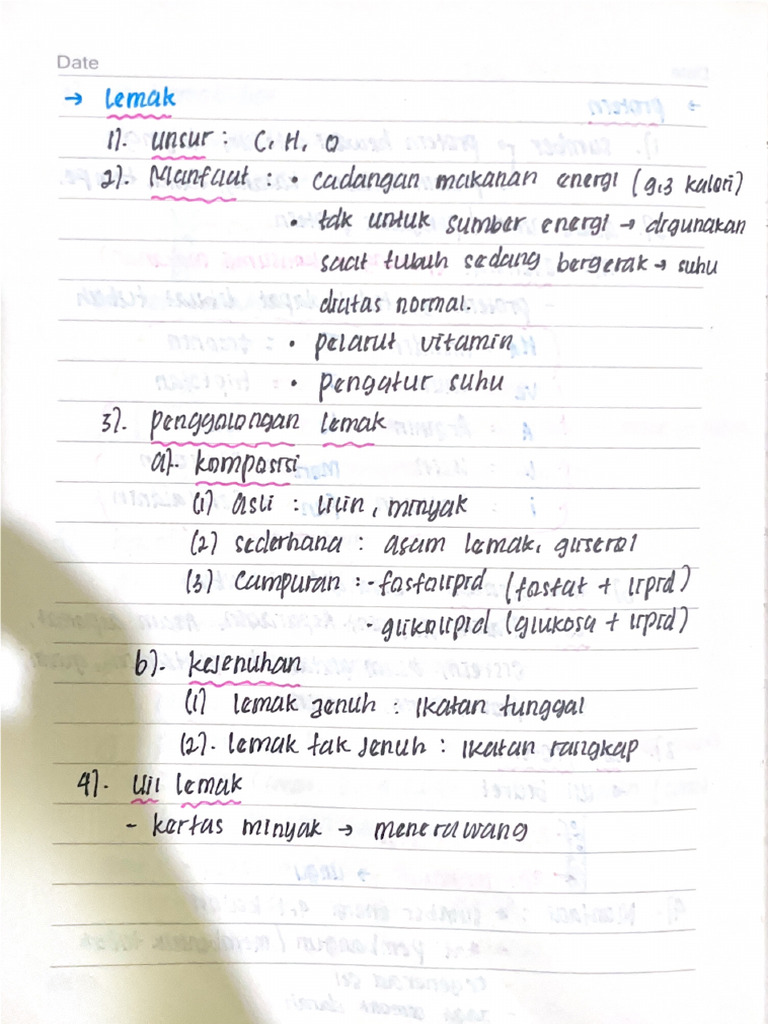 Date
→ Lemak
1). Unsur : C, H, O
2). Manfaat : • cadangan makanan energi (9,3 kalori)
• tdk untuk sumber energi → digunakan
saat tubuh sedang bergerak → suhu
diatas normal.
• pelarut vitamin
• pengatur suhu
3). penggolongan lemak
a). komposisi
(1) asli : lilin, minyak
(2) sederhana : asam lemak, gliserol
(3) Campuran : - fosfolipid (fosfat + lipid)
- glikolipid (glukosa + lipid)
b). kejenuhan
(1) lemak jenuh : ikatan tunggal
(2). lemak tak jenuh : ikatan rangkap
4). Uji lemak
- kertas minyak → menerawang